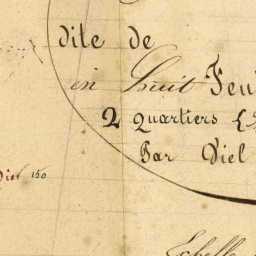 dite de
en huit Feu
2 Quartiers
Par Viel
150
Echelle